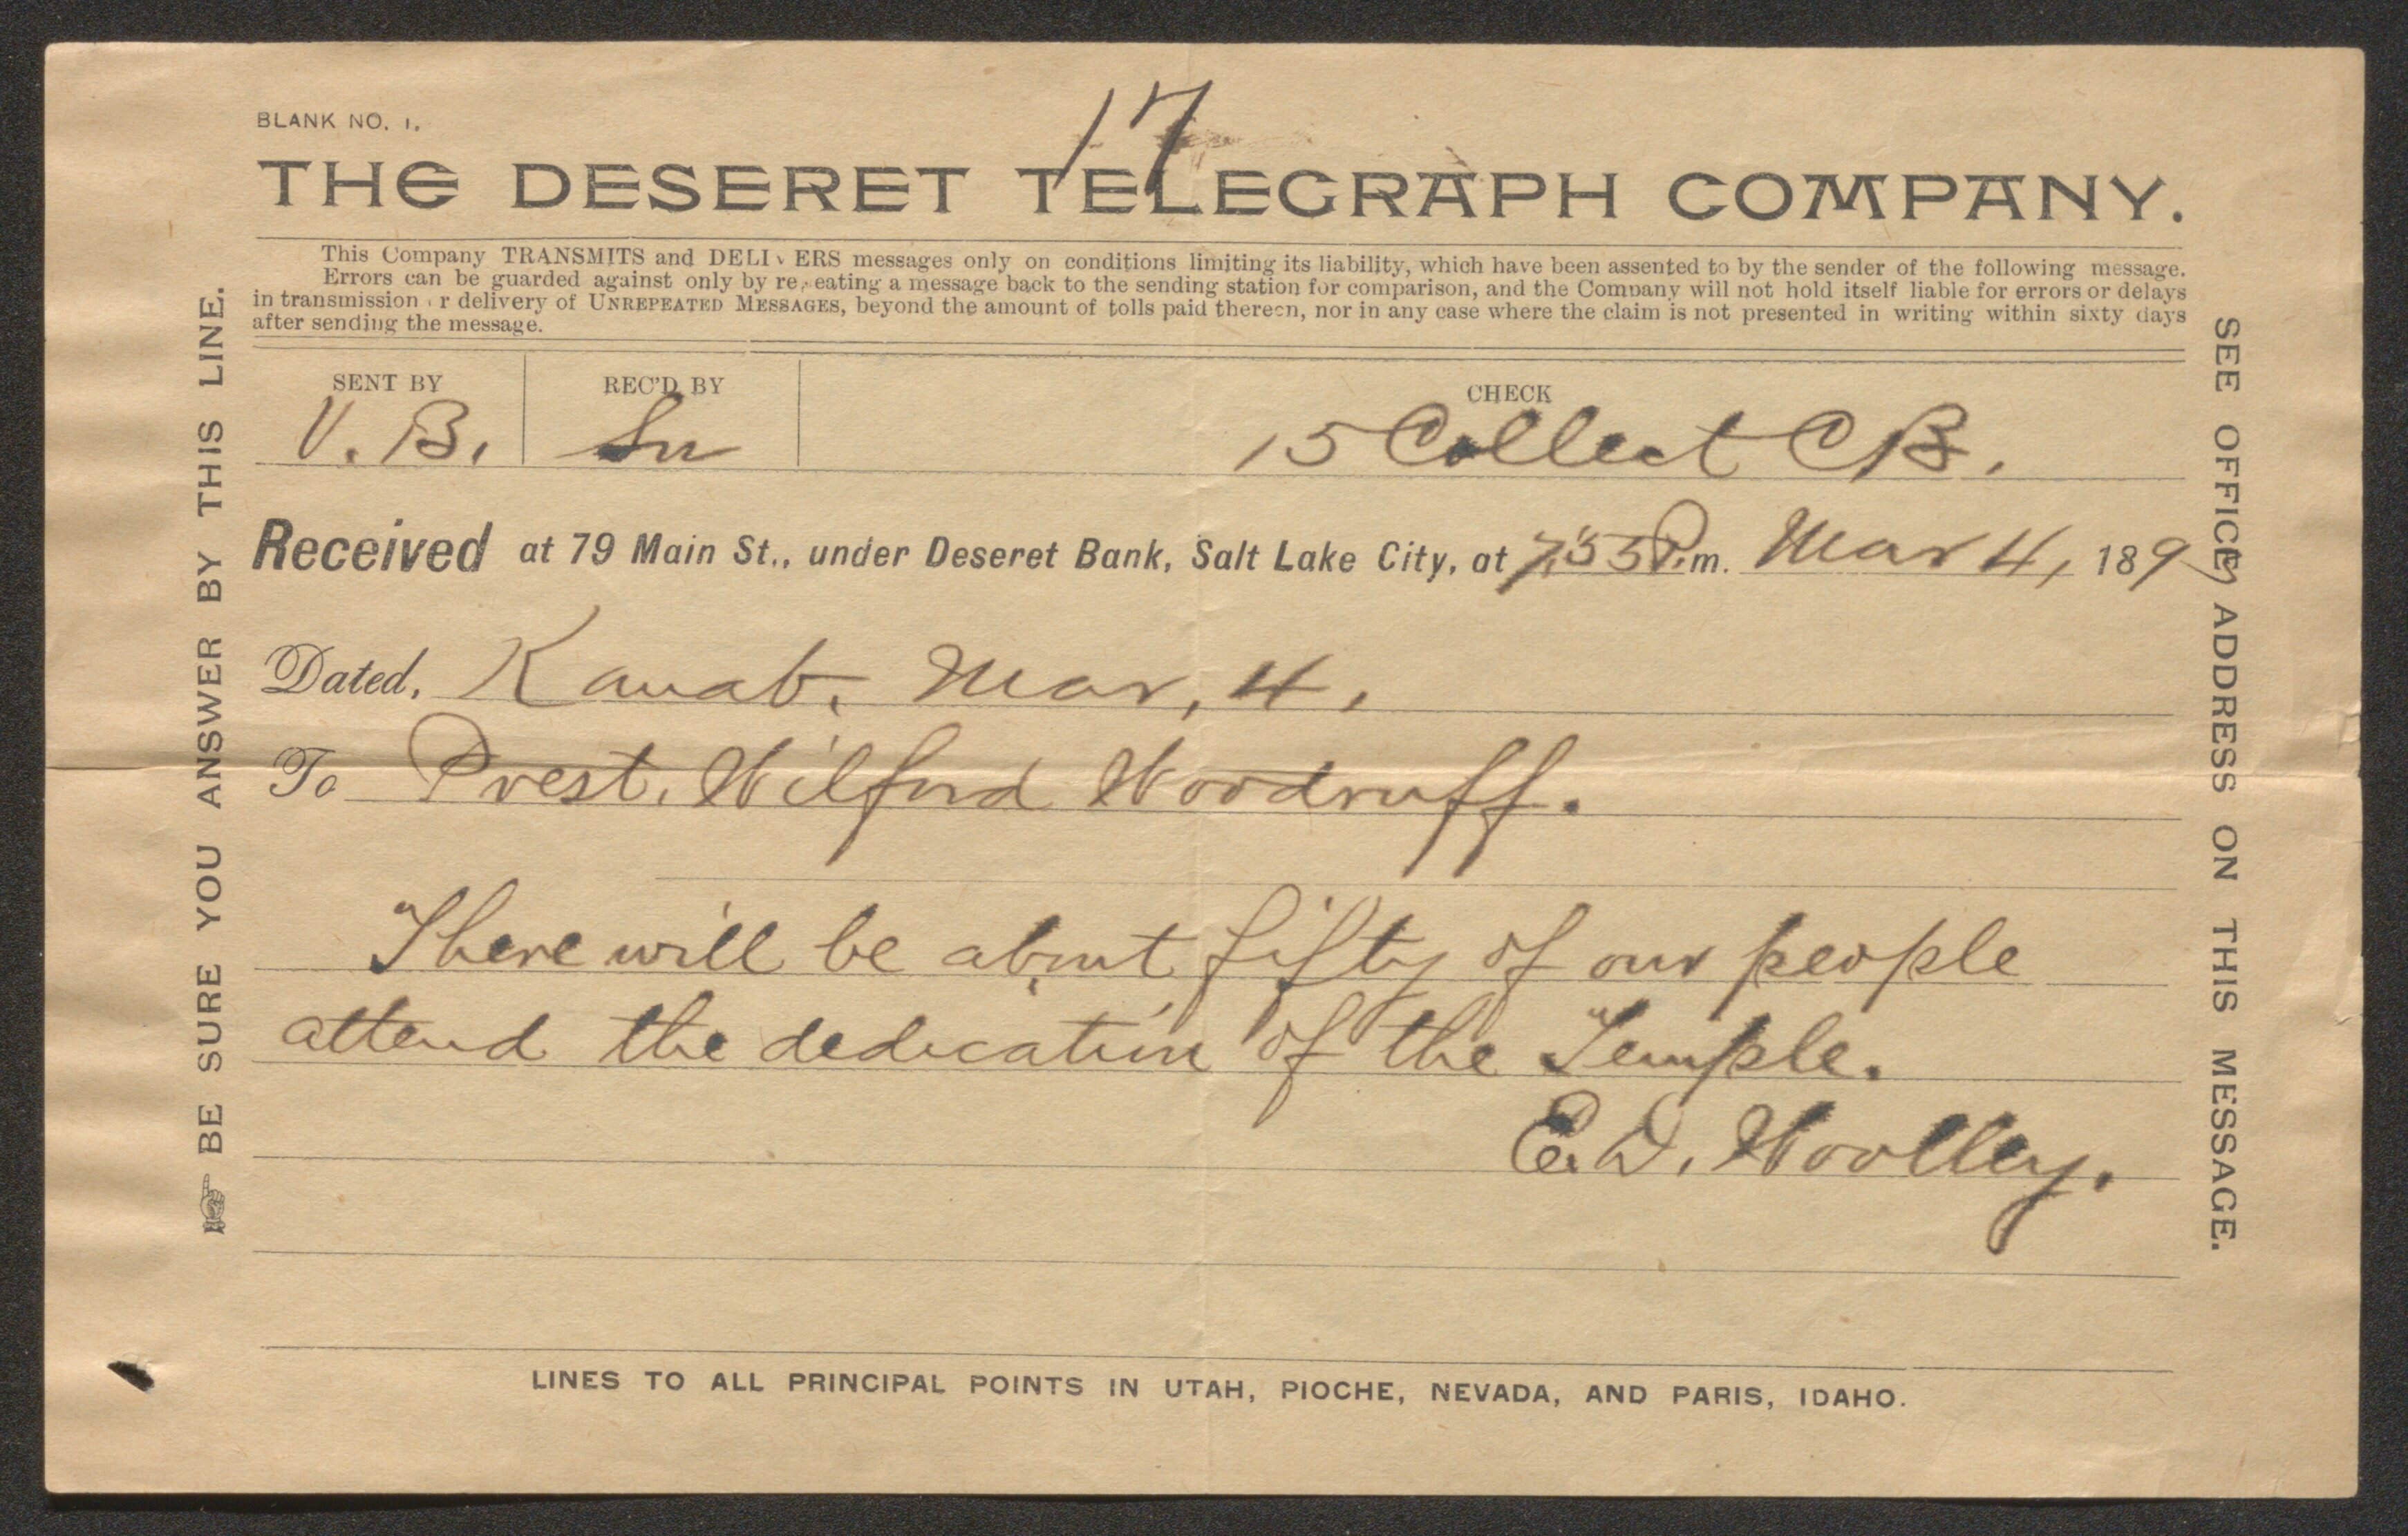 17
BLANK NO. 1.
THE DESERET TELEGRAPH COMPANY.
This Company TRANSMITS and DELIVERS messages only on conditions limiting its liability, which have been assented to by the sender of the following message.
Errors can be guarded against only by repeating a message back to the sending station for comparison, and the Company will not hold itself liable for errors or delays
in transmission or delivery of UNREPEATED MESSAGES, beyond the amount of tolls paid thereon, nor in any case where the claim is not presented in writing within sixty days
after sending the message.
SENT BY REC'D BY CHECK
V. B. Su 15 Collect CB.
Received at 79 Main St., under Deseret Bank, Salt Lake City, at 7,55 P.m. Mar 4, 1893
Dated, Kanab, Mar, 4,
To Prest. Wilford Woodruff.
There will be about fifty of our people
attend the dedication of the Temple.
E. D. Woolley.
LINES TO ALL PRINCIPAL POINTS IN UTAH, PIOCHE, NEVADA, AND PARIS, IDAHO.
BE SURE YOU ANSWER BY THIS LINE.
SEE OFFICE ADDRESS ON THIS MESSAGE.